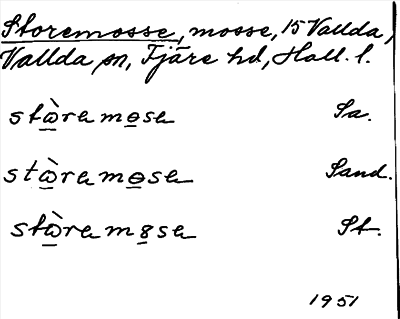 Storemosse, mosse, 15 Vallda,
Vallda sn, Fjäre hd, Hall. l.
stὼra mɵsa Sa.
stὼra mɵsa Sand.
stὼra m8sa St.
1951